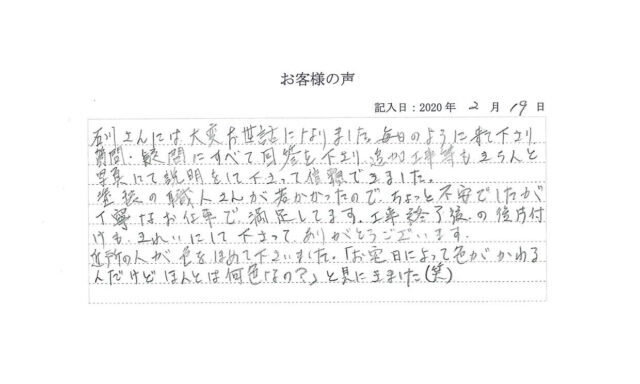 お客様の声
記入日：2020年 2月 19日
石川さんには大変お世話になりました。毎日のように来て下さり
質問・疑問にすべて回答を下さり、追加工事等もきちんと
写真にて説明をして下さって信頼できました。
塗装の職人さんが若かったので、ちょっと不安でしたが
丁寧なお仕事で、満足してます。工事終了後の後片付
けも、きれいにして下さって、ありがとうございます。
近所の人が、色をほめて下さいました。「お宅日によって色がかわる
んだけどほんとは何色なの？」と見にきました（笑）